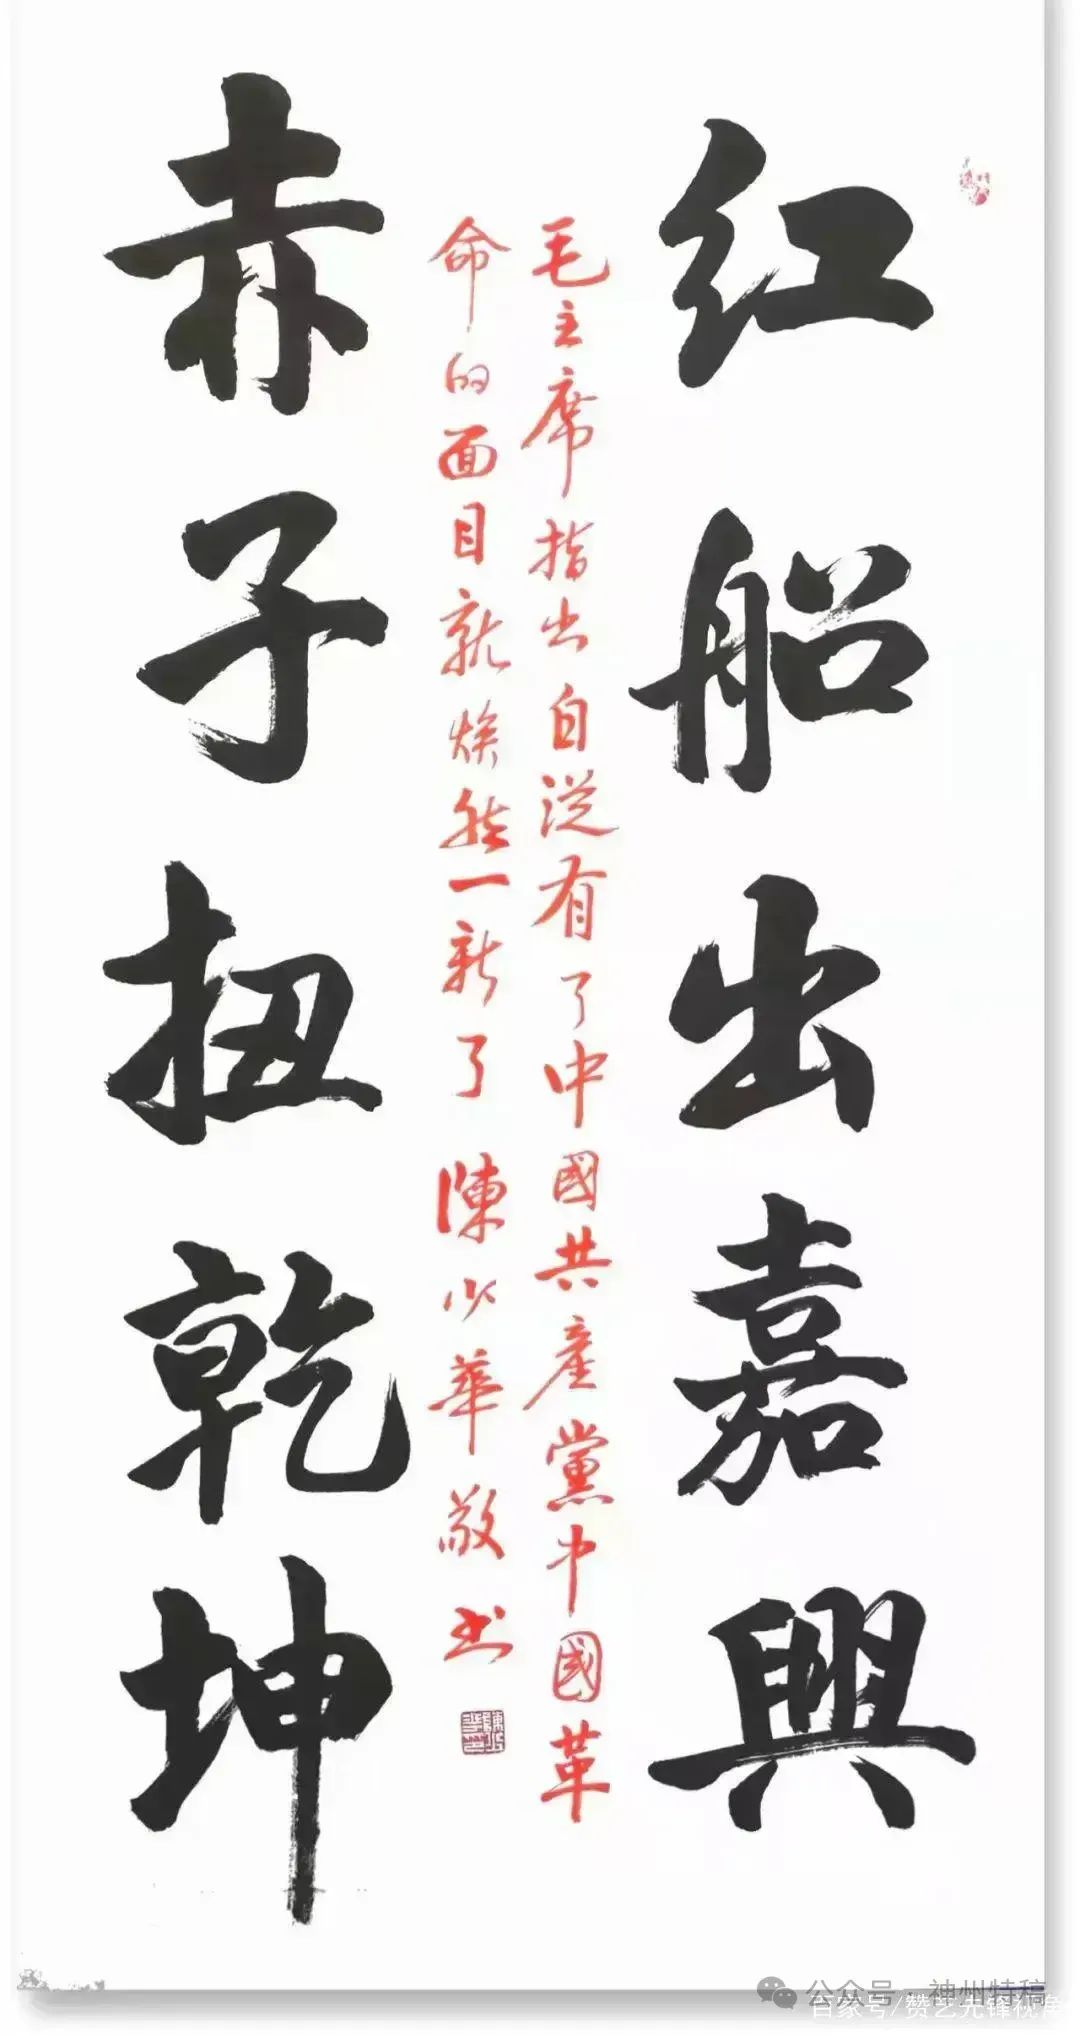 红船出嘉興
毛主席指出自從有了中國共産黨中國革
命的面目就焕然一新了 陳少華敬书
赤子扭乾坤
公众号·神州特稿
百家号/赞艺先锋视角